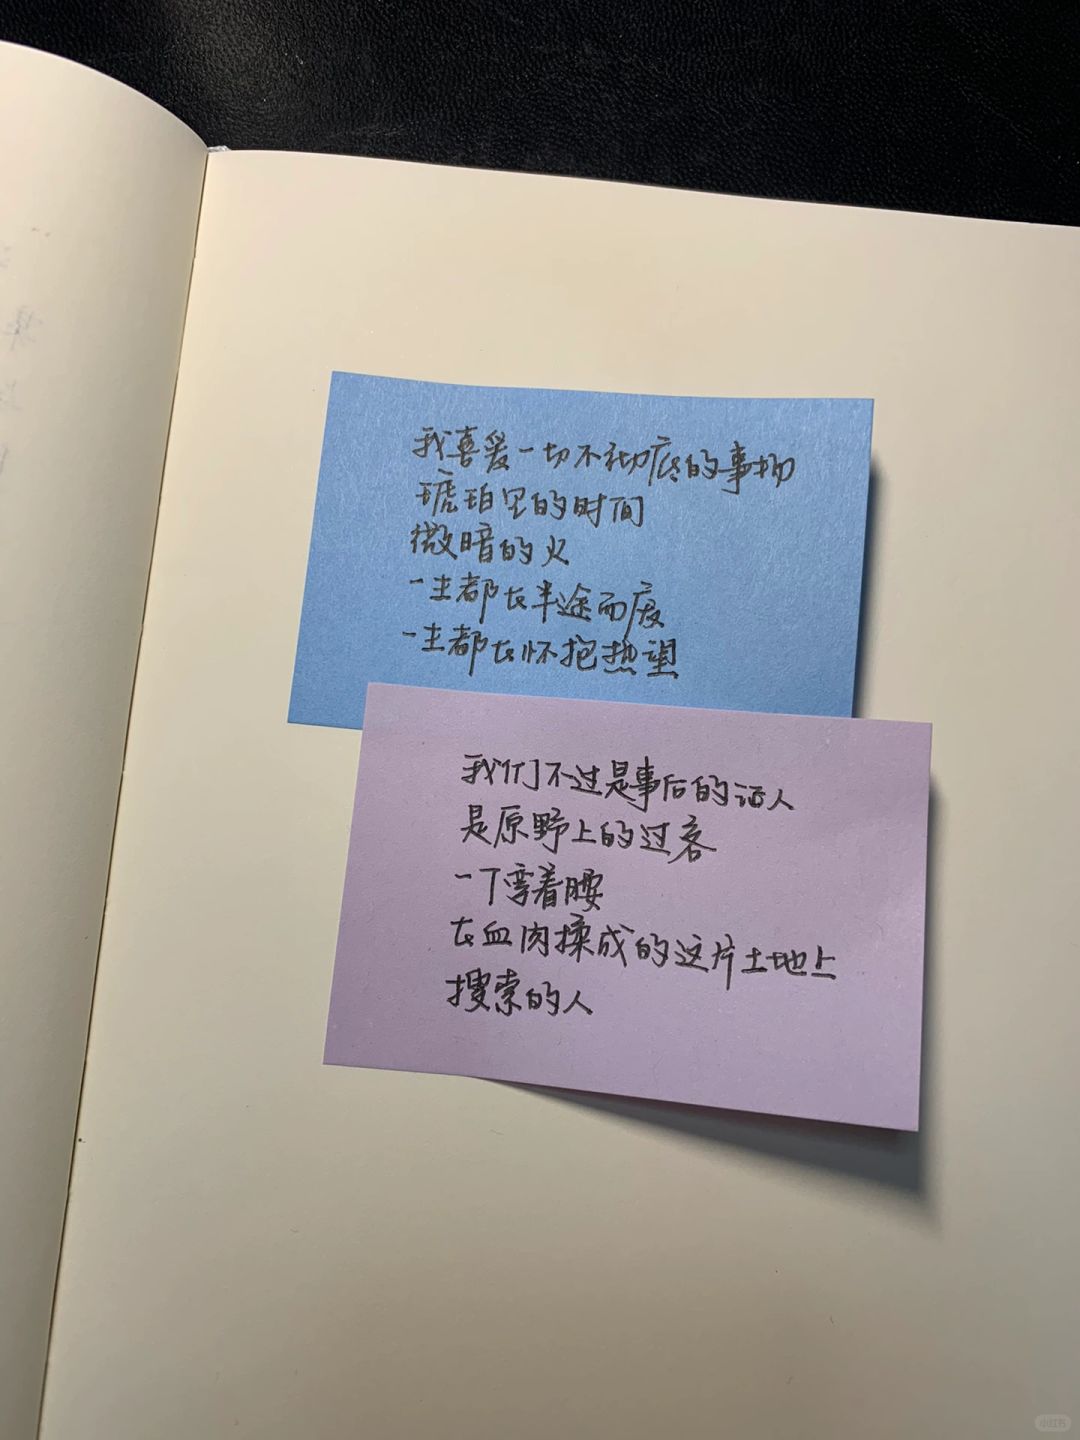 我喜爱一切不彻底的事物
琥珀里的时间
微暗的火
一生都在半途而废
一生都在怀抱热望
我们不过是事后的证人
是原野上的过客
一个弯着腰
在血肉揉成的这片土地上
搜索的人
小红书